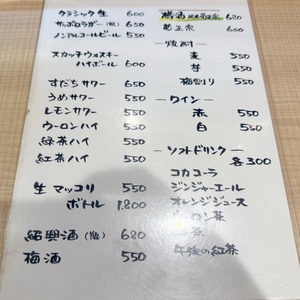 クラシック生 600
サッポロラガー(瓶) 650
ノンアルコールビール 550
スカッチウォスキー
ハイボール 600
すだちサワー 650
うめサワー 550
レモンサワー 550
ウーロンハイ 550
緑茶ハイ 550
紅茶ハイ 550
生マッコリ 550
ボトル 1.800
紹興酒(瓶) 680
梅酒 550
燗酒 680
菊正宗 600
-焼酎-
麦 550
芋 550
梅割り 550
-ワイン-
赤 550
白 550
-ソフトドリンク-
各300
コカコーラ
ジンジャーエール
オレンジジュース
ウーロン茶
茶
午後の紅茶